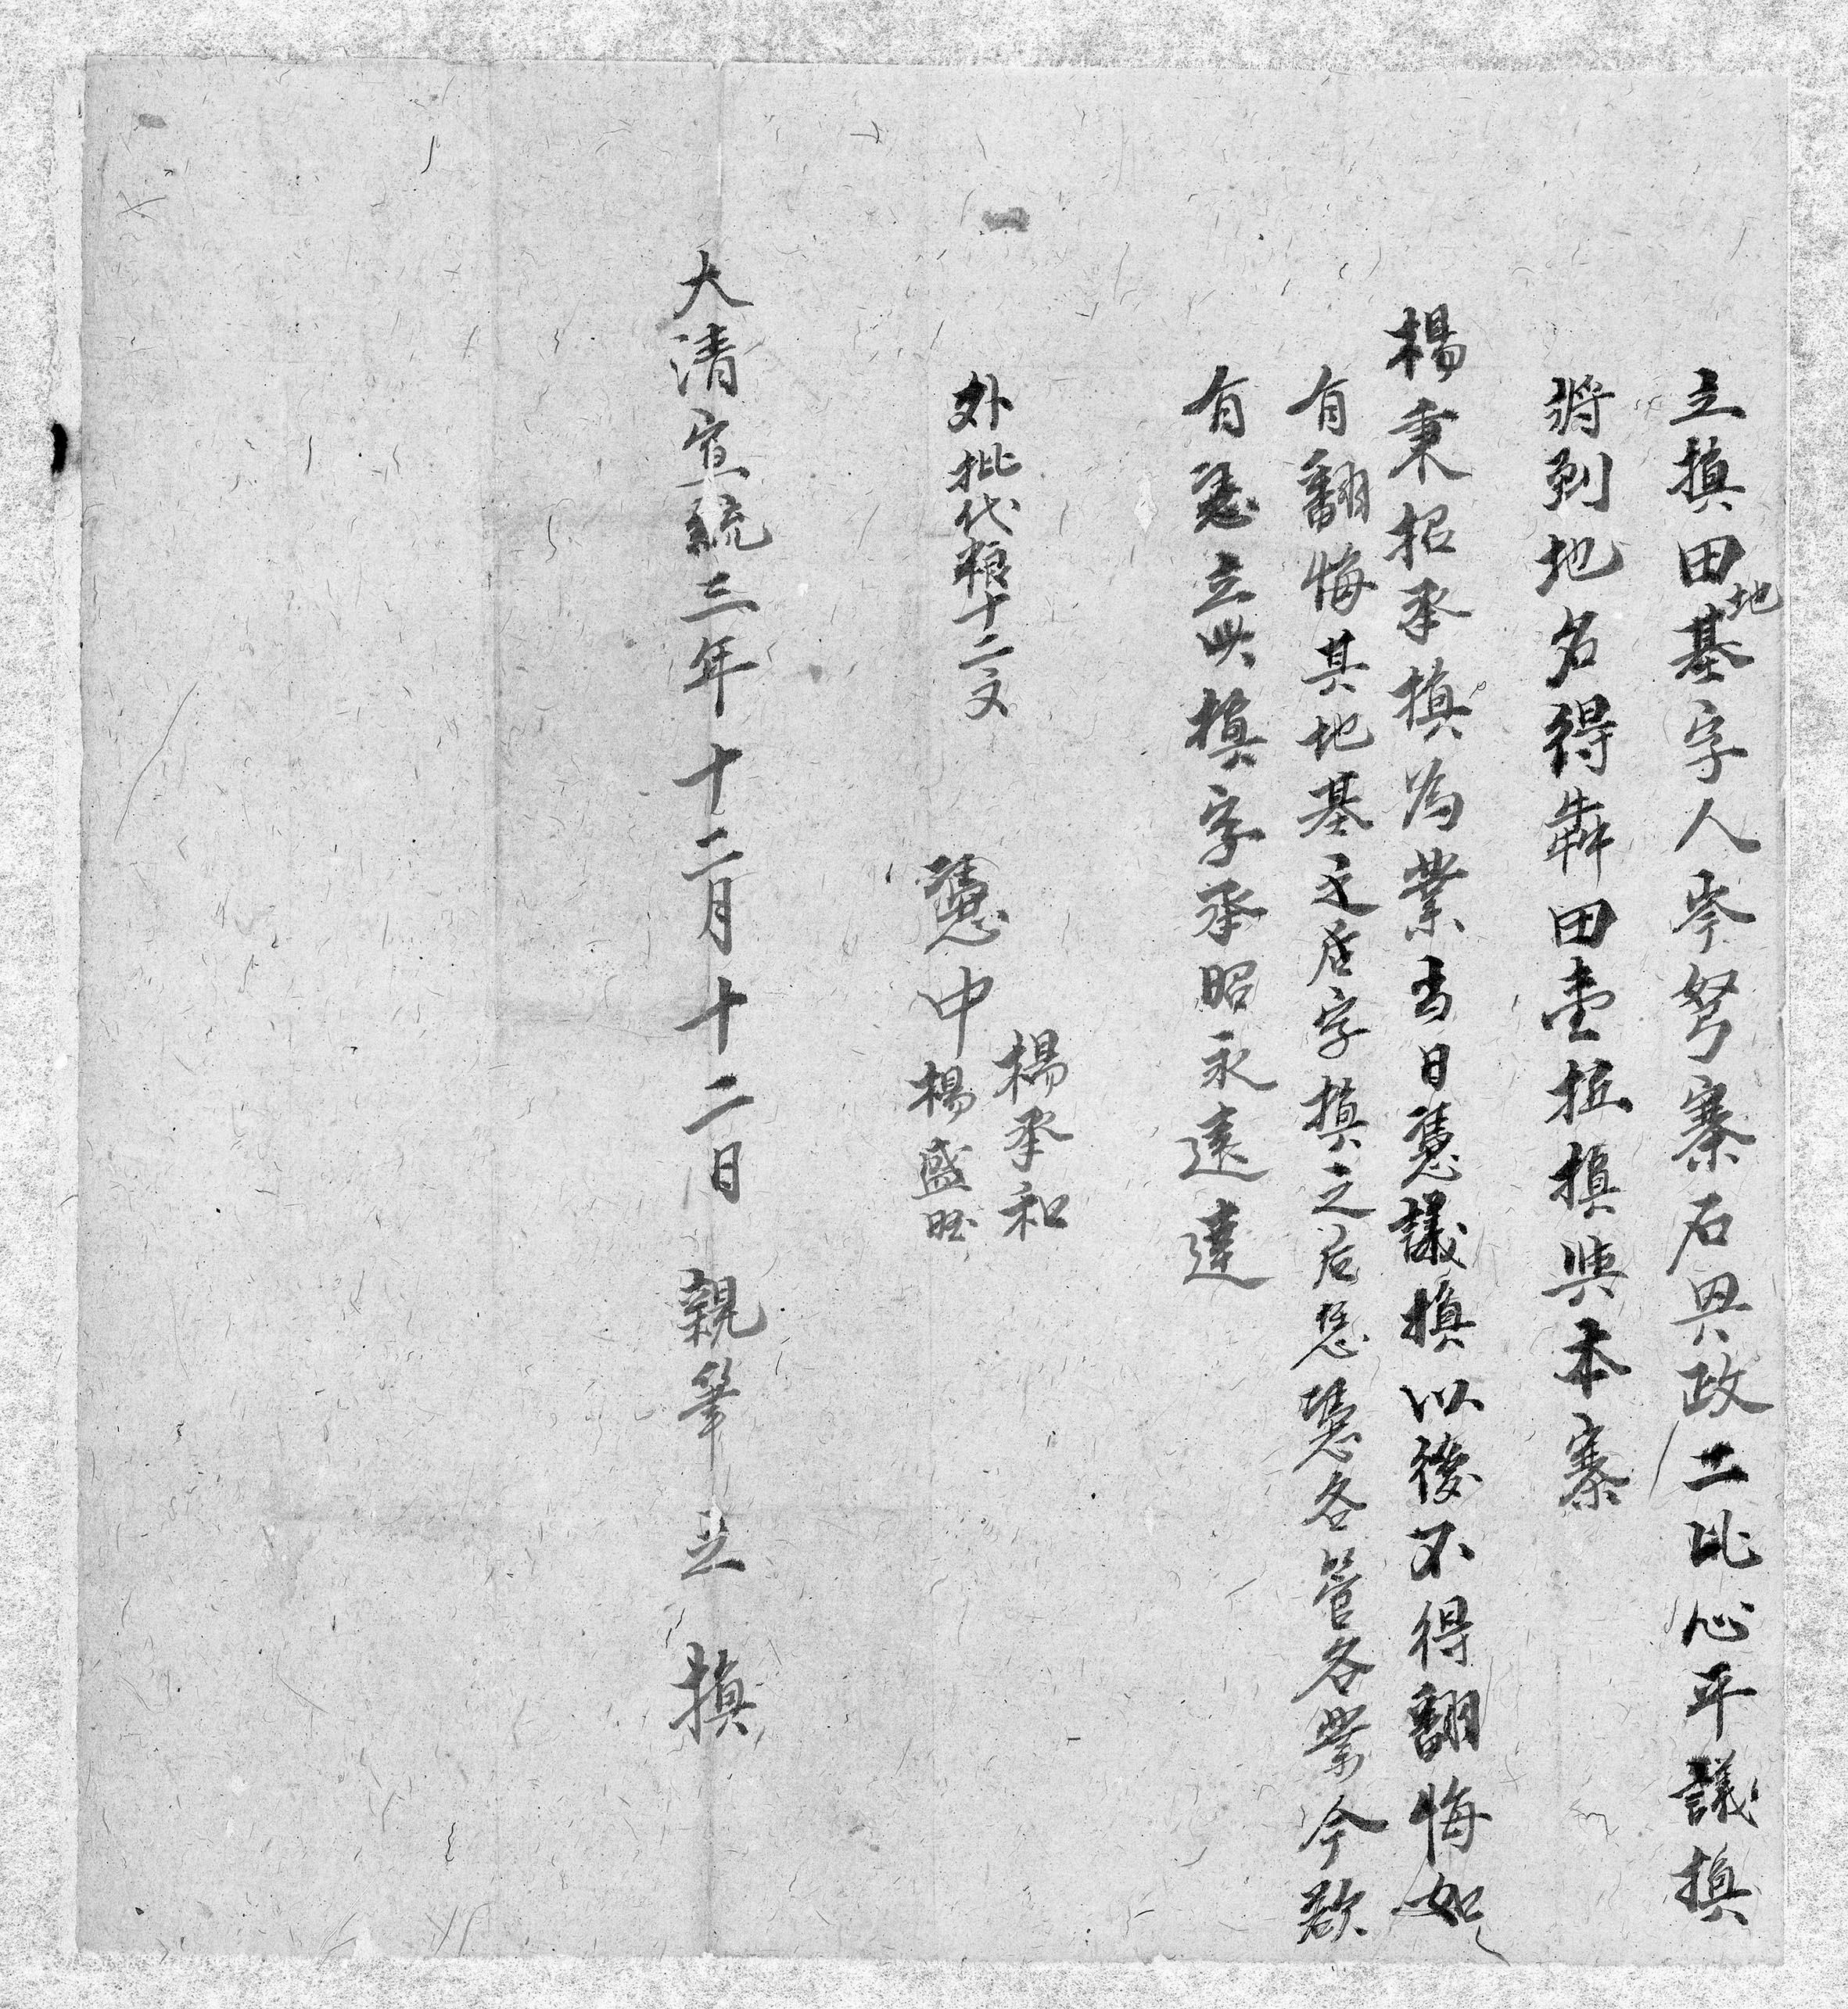 立换田地基字人岑努寨石異政二比心平議换
將到地名得犇田壹坵换與本寨
楊秉招承换為業当日憑議换以後不得翻悔如
有翻悔其地基之居字换之后憑各管各業今欲
有憑立此换字承昭永遠達
外批代粮十二文
楊承和
憑中楊盛
大清宣統三年十二月十二日親筆立换